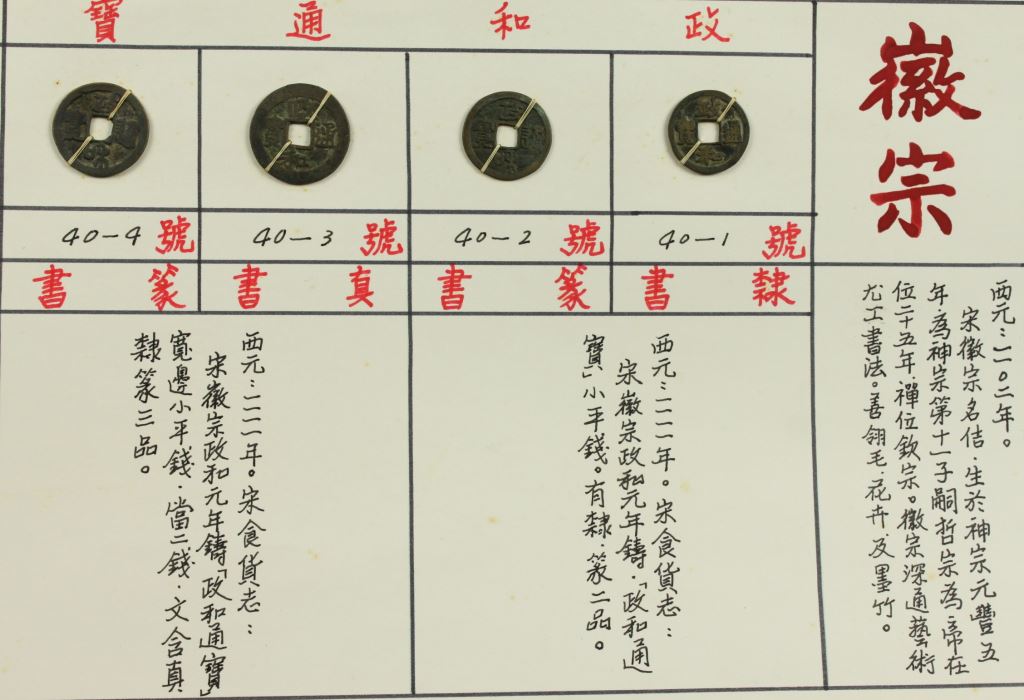 徽宗
西元：一一〇二年。
宋徽宗名佶．生於神宗元豐五
年．為神宗第十一子嗣哲宗為帝在
位二十五年．禪位欽宗。徽宗深通藝術
尤工書法。善翎毛．花卉．及墨竹。
政和通寶
40—1 號
隸書
40—2 號
篆書
40—3 號
真書
40—4 號
篆書
西元：一一一一年。宋食貨志：
宋徽宗政和元年鑄．「政和通
寶」小平錢。有隸．篆二品。
西元：一一一一年。宋食貨志：
宋徽宗政和元年鑄「政和通寶」
寬邊小平錢．當二錢．文含真
隸篆三品。